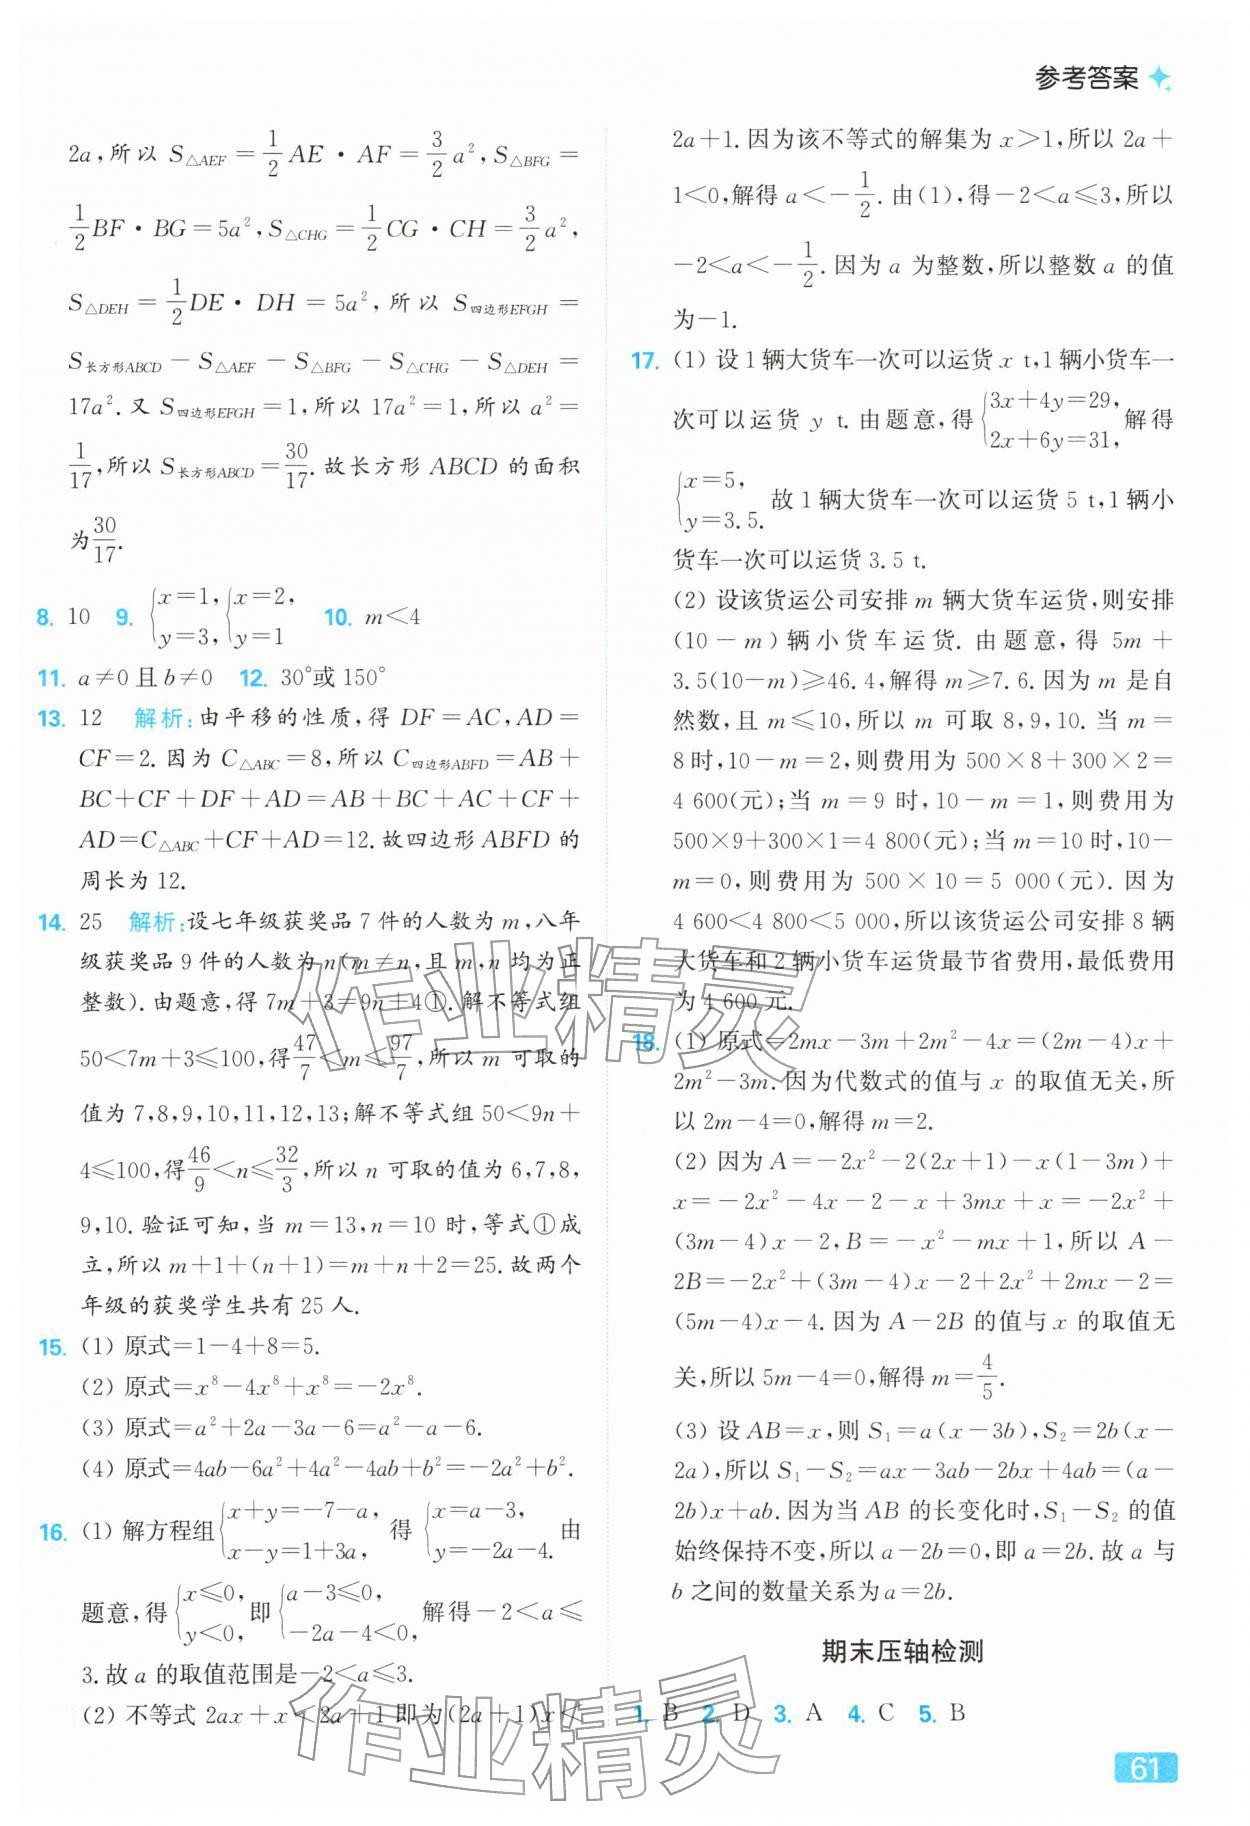 参考答案
2a,所以 S△AEF=1/2 AE·AF=3/2 a²,S△BFG=
1/2 BF·BG=5a²,S△CHG=1/2 CG·CH=3/2 a²,
S△DEH=1/2 DE·DH=5a²,所以 S四边形EFGH=
S长方形ABCD-S△AEF-S△BFG-S△CHG-S△DEH=
17a².又 S四边形EFGH=1,所以 17a²=1,所以 a²=
1/17,所以 S长方形ABCD=30/17.故长方形 ABCD 的面积
为30/17.
8. 10 9. {x=1, y=3, {x=2, y=1 10. m<4
11. a≠0 且 b≠0 12. 30°或 150°
13. 12 解析:由平移的性质,得 DF=AC,AD=
CF=2.因为 C△ABC=8,所以 C四边形ABFD=AB+
BC+CF+DF+AD=AB+BC+AC+CF+
AD=C△ABC+CF+AD=12.故四边形 ABFD 的
周长为 12.
14. 25 解析:设七年级获奖品 7 件的人数为 m,八年
级获奖品 9 件的人数为 n(m≠n,且 m,n 均为正
整数).由题意,得 7m+3=9n+4①.解不等式组
50<7m+3≤100,得47/7<m≤97/7,所以 m 可取的
值为 7,8,9,10,11,12,13;解不等式组 50<9n+
4≤100,得46/9<n≤32/3,所以 n 可取的值为 6,7,8,
9,10.验证可知,当 m=13,n=10 时,等式①成
立,所以 m+1+(n+1)=m+n+2=25.故两个
年级的获奖学生共有 25 人.
15. (1) 原式=1-4+8=5.
(2) 原式=x⁸-4x⁸+x⁸=-2x⁸.
(3) 原式=a²+2a-3a-6=a²-a-6.
(4) 原式=4ab-6a²+4a²-4ab+b²=-2a²+b².
16. (1) 解方程组{x+y=-7-a, x-y=1+3a, 得{x=a-3, y=-2a-4. 由
题意,得{x≤0, y<0, 即{a-3≤0, -2a-4<0, 解得-2<a≤
3.故 a 的取值范围是-2<a≤3.
(2) 不等式 2ax+x<2a+1 即为(2a+1)x<
2a+1.因为该不等式的解集为 x>1,所以 2a+
1<0,解得 a<-1/2.由(1),得-2<a≤3,所以
-2<a<-1/2.因为 a 为整数,所以整数 a 的值
为-1.
17. (1) 设 1 辆大货车一次可以运货 x t,1 辆小货车一
次可以运货 y t.由题意,得{3x+4y=29, 2x+6y=31, 解得
{x=5, y=3.5. 故 1 辆大货车一次可以运货 5 t,1 辆小
货车一次可以运货 3.5 t.
(2) 设该货运公司安排 m 辆大货车运货,则安排
(10-m)辆小货车运货.由题意,得 5m+
3.5(10-m)≥46.4,解得 m≥7.6.因为 m 是自
然数,且 m≤10,所以 m 可取 8,9,10.当 m=
8 时,10-m=2,则费用为 500×8+300×2=
4 600(元);当 m=9 时,10-m=1,则费用为
500×9+300×1=4 800(元);当 m=10 时,10-
m=0,则费用为 500×10=5 000(元).因为
4 600<4 800<5 000,所以该货运公司安排 8 辆
大货车和 2 辆小货车运货最节省费用,最低费用
为 4 600 元.
18. (1) 原式=2mx-3m+2m²-4x=(2m-4)x+
2m²-3m.因为代数式的值与 x 的取值无关,所
以 2m-4=0,解得 m=2.
(2) 因为 A=-2x²-2(2x+1)-x(1-3m)+
x=-2x²-4x-2-x+3mx+x=-2x²+
(3m-4)x-2,B=-x²-mx+1,所以 A-
2B=-2x²+(3m-4)x-2+2x²+2mx-2=
(5m-4)x-4.因为 A-2B 的值与 x 的取值无
关,所以 5m-4=0,解得 m=4/5.
(3) 设 AB=x,则 S₁=a(x-3b),S₂=2b(x-
2a),所以 S₁-S₂=ax-3ab-2bx+4ab=(a-
2b)x+ab.因为当 AB 的长变化时,S₁-S₂ 的值
始终保持不变,所以 a-2b=0,即 a=2b.故 a 与
b 之间的数量关系为 a=2b.
期末压轴检测
1. B 2. D 3. A 4. C 5. B
61
作业精灵
作业精灵